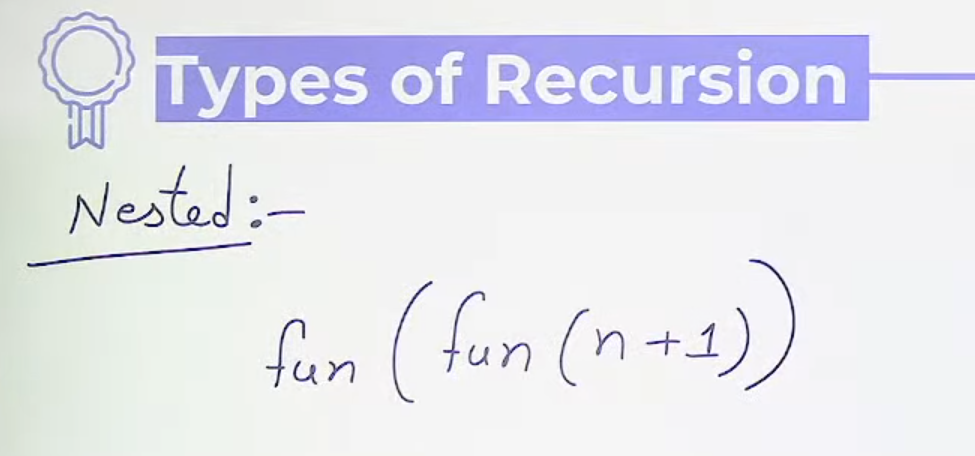 Types of Recursion
Nested:-
fun (fun (n+1))